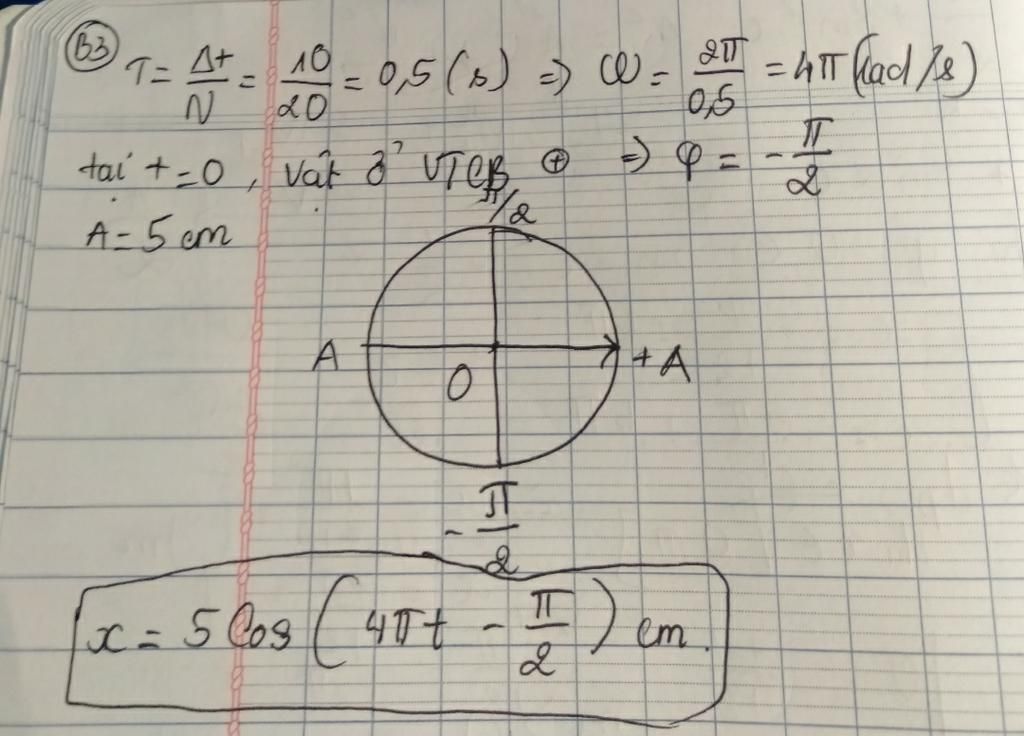 B3 T = Δt/N = 10/20 = 0,5 (s) ⇒ ω = 2π/0,5 = 4π (rad/s)
tại t = 0, vật ở VTCB ⊕ ⇒ φ = -π/2
A = 5 cm
π/2
A O +A
-π/2
x = 5 Cos (4πt - π/2) cm.